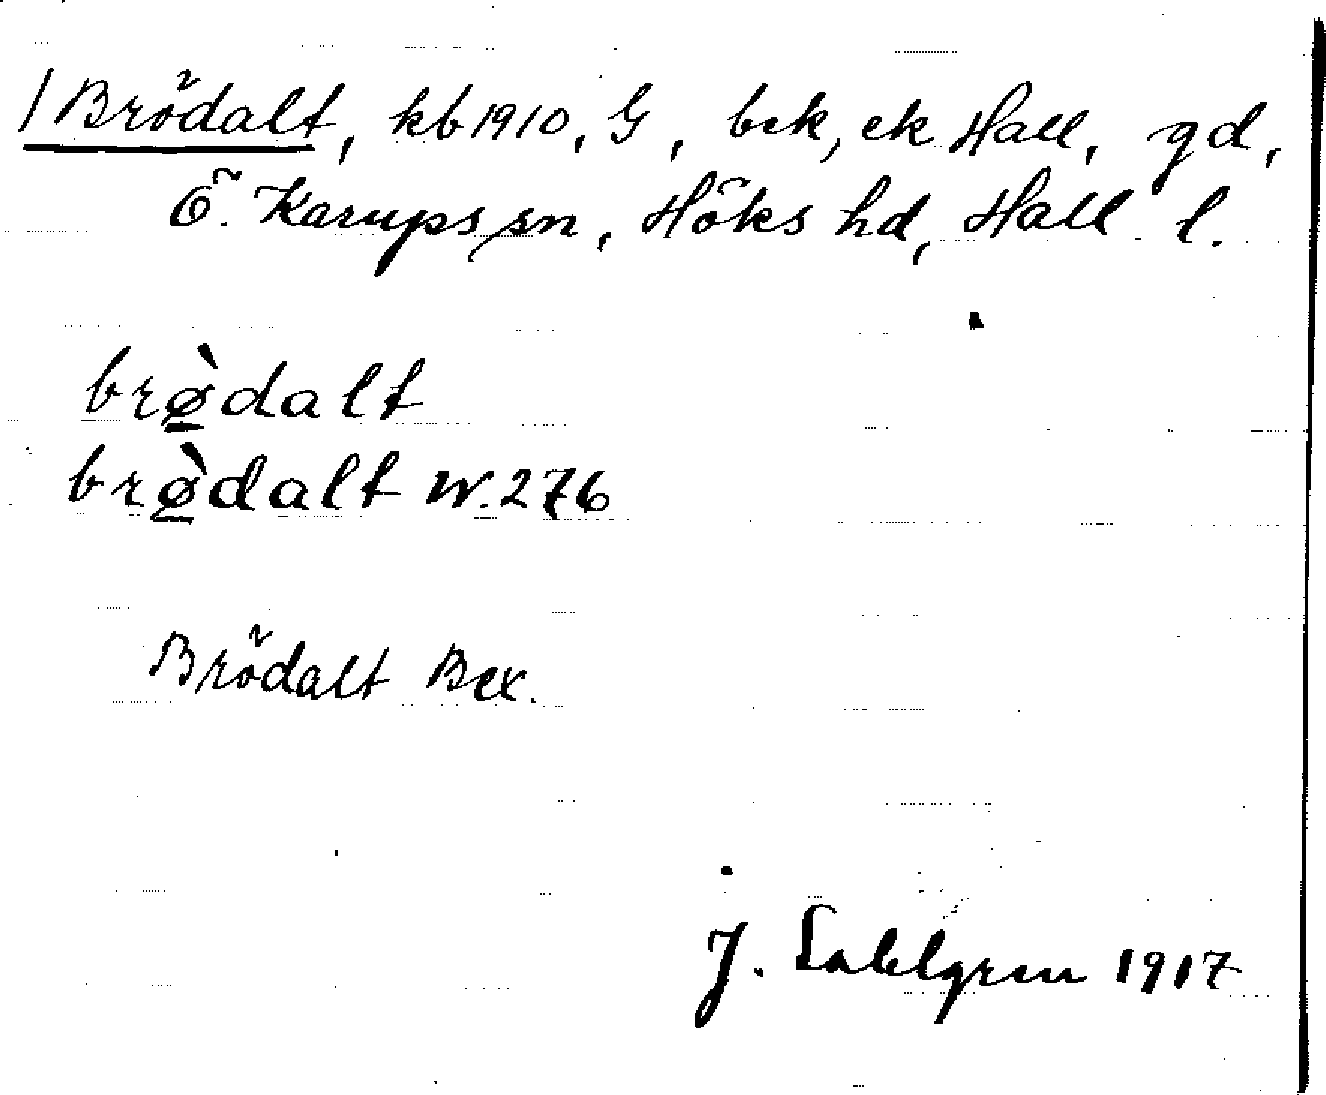 /Brödalt, kb 1910, G, bck, ek Hall, gd,
Ö. Karups sn, Höks hd, Hall l.
brø̱̀dalt
brø̱̀dalt W. 276
Brödalt Bex.
J. Sahlgren 1917